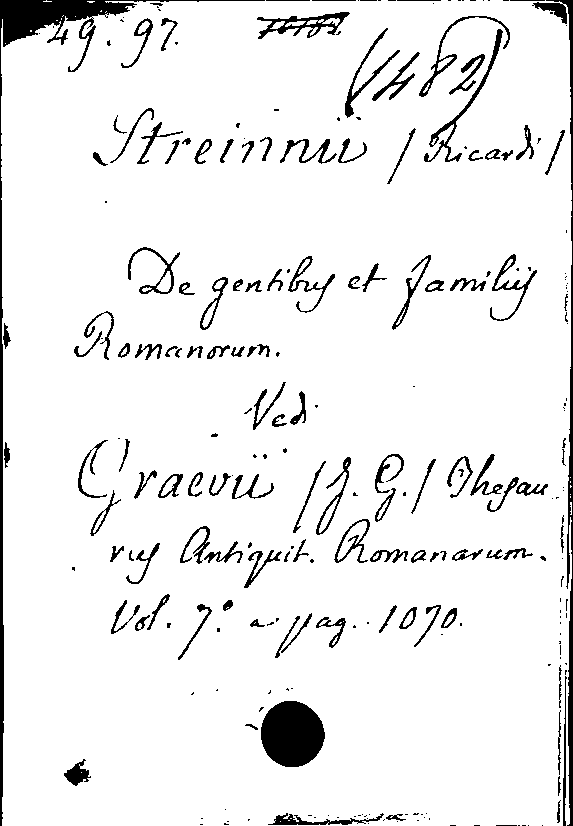 49. 97.
(1482)
Streinnii / Ricardi /
De gentibus et familiis
Romanorum.
Vedi
Graevii / J. G. / Thesau
rus Antiquit. Romanarum.
Vol. 7.º a pag. 1070.